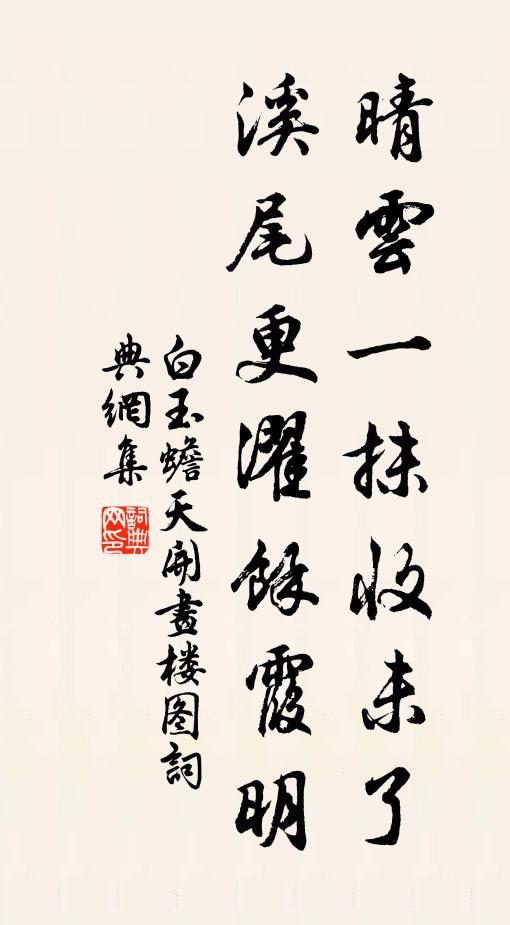 晴雲一抹收未了
溪尾更濯餘霞明
白玉蟾天開畫楼图詞
典網集
詞典网印